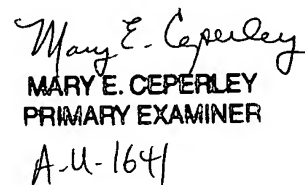 Mary E. Ceperley
MARY E. CEPERLEY
PRIMARY EXAMINER
A-U-1641